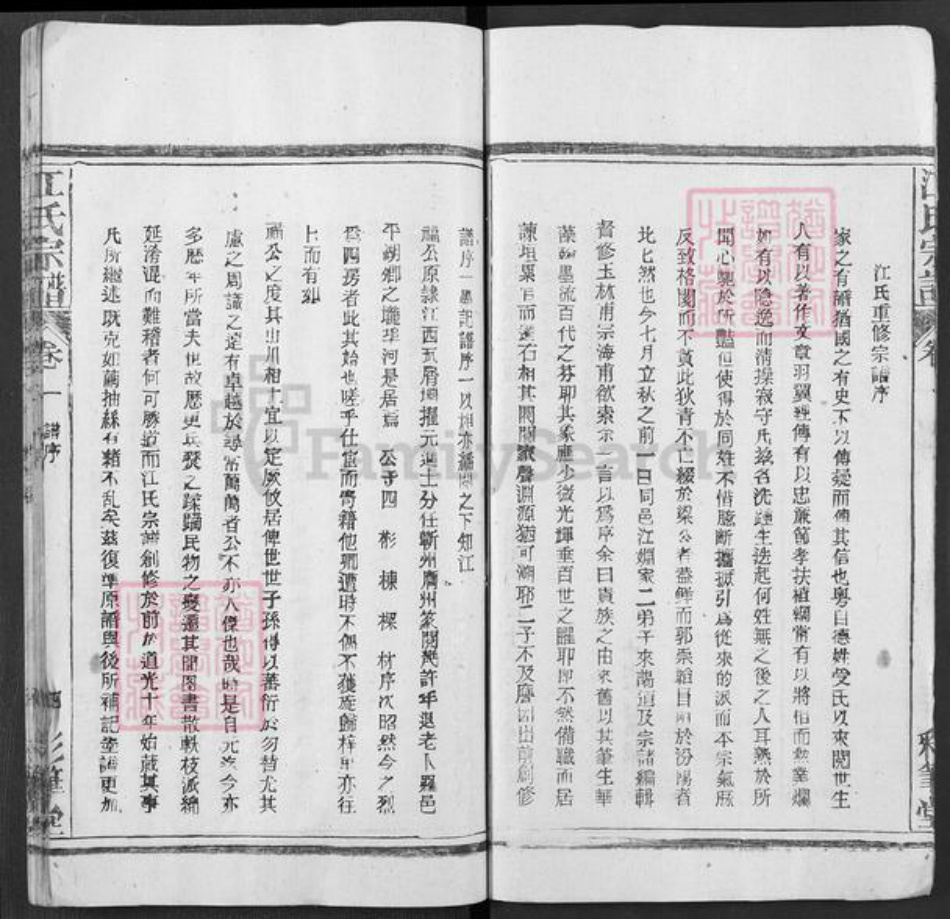 江氏重修宗譜序
家之有譜猶國之有史下以傳疑而傳其信也粵自德姓受氏以來閱世生
人有以著作文章羽翼經傳有以忠廉節孝扶植綱常有以將相而勲業爛
如有以隐逸而清操寂守凡錄名洗鍾生迭起何姓無之後之人耳熟於所
聞心馳於所豔但使得於同姓不惜臆斷攟摭引為從來的派而不宗氣脈
反致格閡而不貫此狄青不亡綴於梁公者蓋鮮而郭崇韜目兩於汾陽者
比比然也今七月立秋之前一日同邑江姻家二弟子來蔼道及宗譜編輯
督修玉林甫宗海甫欲索余一言以爲序余曰貴族之由來舊以其筆生華
藻翰墨流百代之芬耶其象應少微光輝垂百世之耀耶即不然備職而居
諫垣累官而遷右相其閥閱家聲淵源猶可溯耶二子不及詹因出前創修
譜序一墨記譜序一以相亦繙閱之下知江
福公原隸江西瓦屑壩擢元進士分任蘄州膺州篆閱幾許年退老卜羅邑
平湖鄉之壠坪河是居焉 公子四 彬 棟 樑 材序次昭然今之烈
爲四房者此其始也嗟乎仕宦而寄籍他鄉遭時不偶不獲旋歸梓里亦往
往而有如
福公之度其山川相土宜以定厥攸居俾世世子孫得以蕃衍於勿替尤其
慮之周識之達有卓越於尋常萬萬者公不亦人傑也哉時是自元迄今亦
多歷年所當夫世故歷更兵燹之蹂躪民物之變遷其間圖書散軼枝派綿
延淆混而難稽者何可勝道而江氏宗譜創修於前於道光十年始蕆其事
凡所繼述既克如繭抽絲有緒不乱矣茲復準原譜與後所補記塗譜更加
江氏宗譜
卷一
譜序
四
彩筆堂
江氏宗譜
卷一
彩筆堂